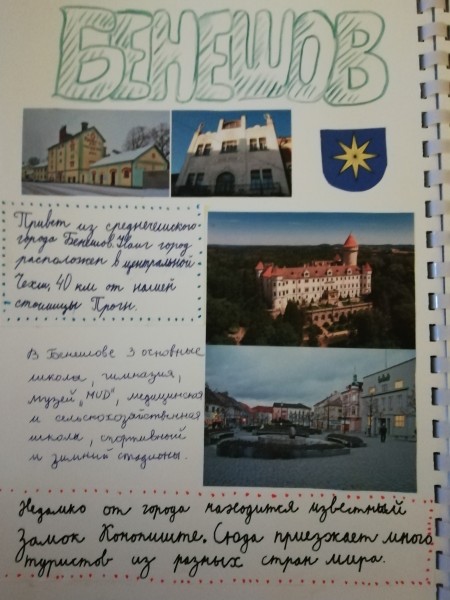 БЕНЕШОВ
Привет из среднечешского
города Бенешов. Наш город
расположен в центральной
Чехии, 40 км от нашей
столицы Праги.
В Бенешове 3 основные
школы, гимназия,
музей „MUD", медицинская
и сельскохозяйственная
школы, спортивный
и зимний стадионы.
Недалеко от города находится известный
замок Конопиште. Сюда приезжает много
туристов из разных стран мира.